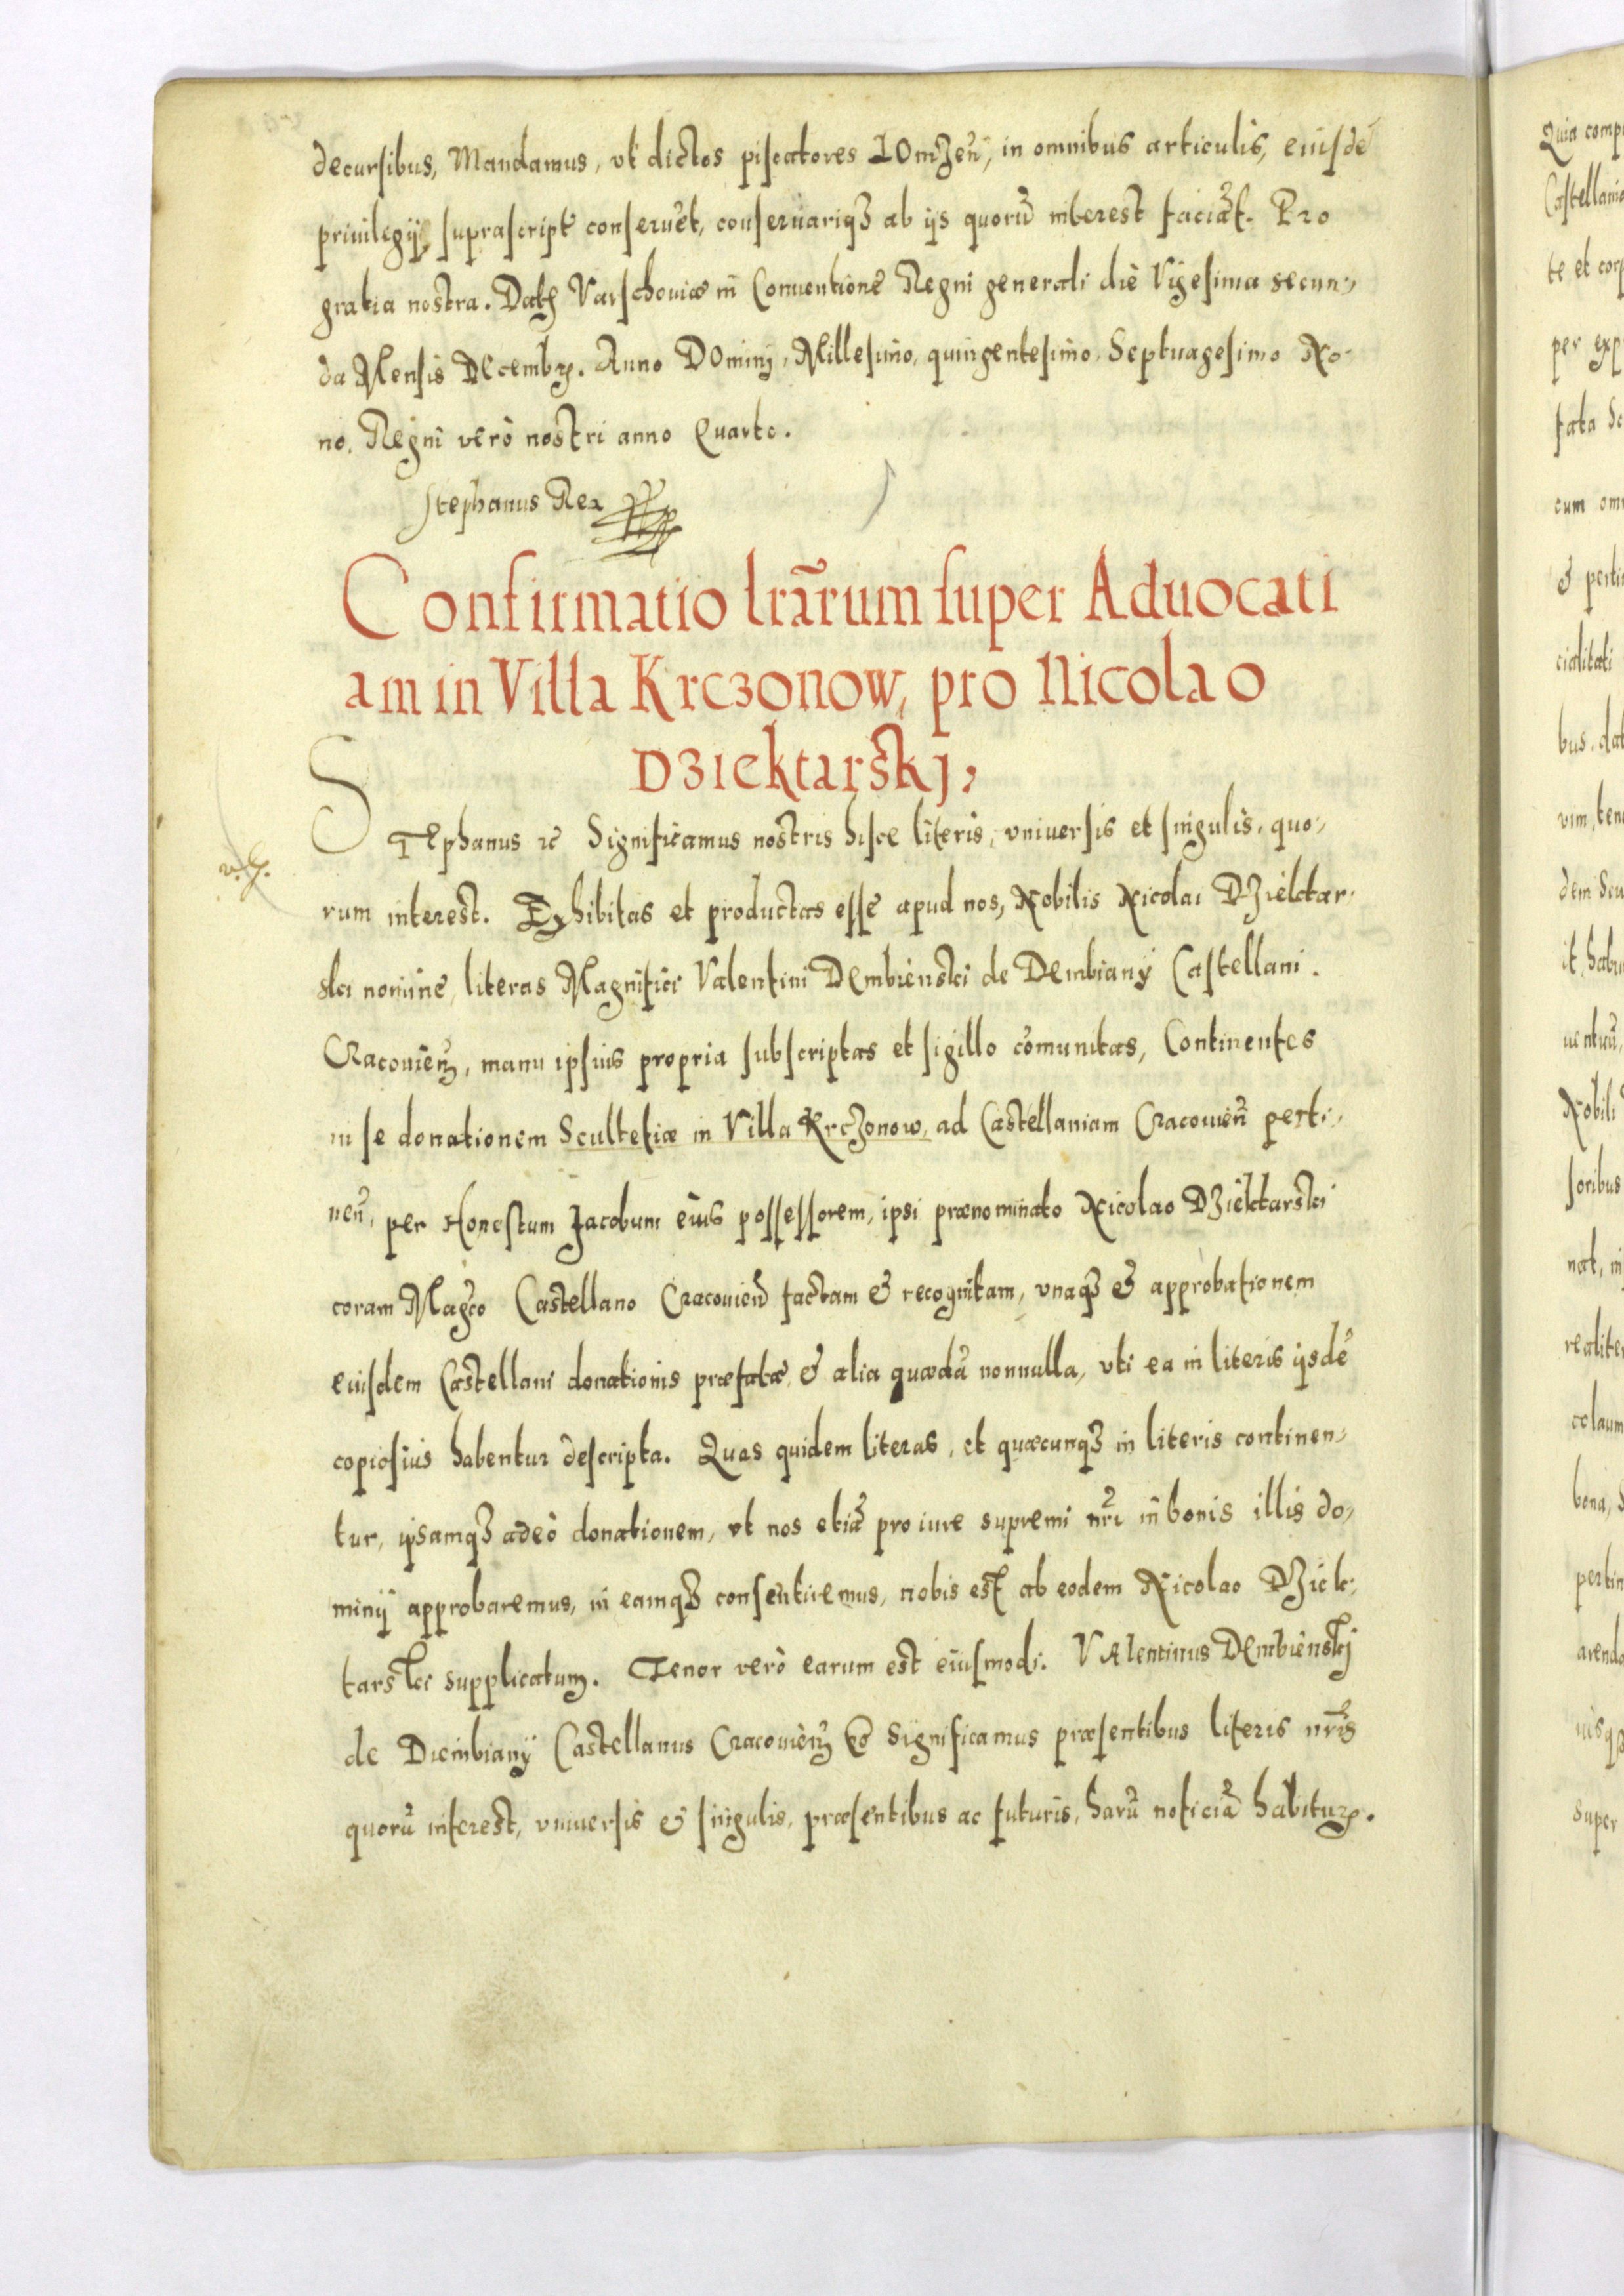 decursibus, Mandamus, vt dictos piscatores LOmzeñ, in omnibus articulis, eiusdē
priuilegij suprascripti conseruēt, conseruariq3 ab ijs quorū interest faciāt. Pro
gratia nostra. Datꝭ Varschouiæ in Conuentione Regni generali die Vigesima secun-
da Mensis Decembrꝭ. Anno DOminj, Millesimo, quingentesimo, Septuagesimo No-
no, Regni verò nostri anno Quarto.
Stephanus Rex
Confirmatio lrārum super Aduocati
am in Villa Krczonow, pro Nicolao
Dziektarskj,
STephanus ꝛc Significamus nostris hisce literis, vniuersis et singulis, quo-
rum interest. Exhibitas et productas esse apud nos, Nobilis Nicolai Dziektar-
ski nomine, literas Magnifici Valentini Dembienski de Dembiany Castellani
Cracouieñ, manu ipsius propria subscriptas et sigillo cōmunitas, Continentes
in se donationem Scultetiæ in Villa Krczonow, ad Castellaniam Cracouieñ perti-
neñ, per Honestum Jacobum eius possessorem, ipsi prænominato Nicolao Dziektarski
coram Magco Castellano Cracouieñ factam & recognitam, vnaq3 & approbationem
eiusdem Castellani donationis præfatæ, & alia quædā nonnulla, vti ea in literis ijsdē
copiosius habentur descripta. Quas quidem literas, et quæcunq3 in literis continen-
tur, ipsamq3 adeò donationem, vt nos etiā pro iure supremi nrī in bonis illis do-
minij approbaremus, in eamq3 consentiremus, nobis est ab eodem Nicolao Dziek-
tarski supplicatum. Tenor verò earum est eiusmodi. VAlentinus Dembienskj
de Diembiany Castellanus Cracouieñ ꝛc Significamus præsentibus literis nrīs
quorū interest, vniuersis & singulis, præsentibus ac futuris, harū noticiā habiturꝭ.